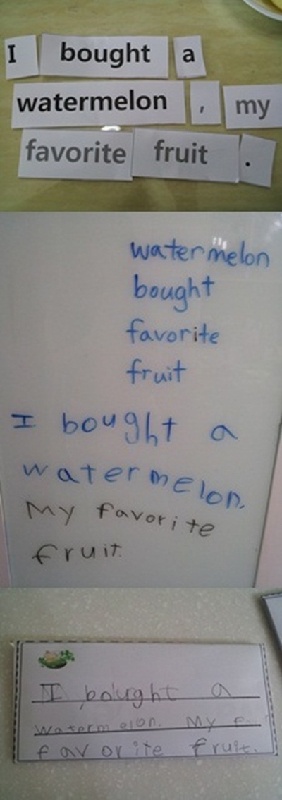 I bought a
watermelon , my
favorite fruit .
watermelon
bought
favorite
fruit
I bought a
watermelon.
My favorite
fruit.
I bought a
watermelon. My f
favorite fruit.